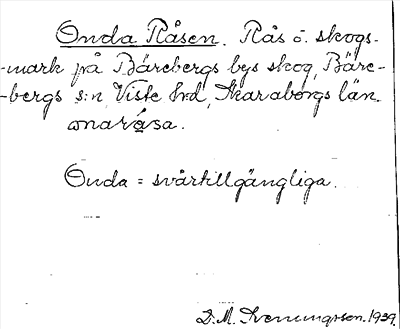 Onda Råsen. Rås o. skogs-
-mark på Bärebergs bys skog, Bäre-
-bergs s:n, Viste hrd, Skaraborgs län.
onaråsa.
Onda = svårtillgängliga.
D. M. 1939.